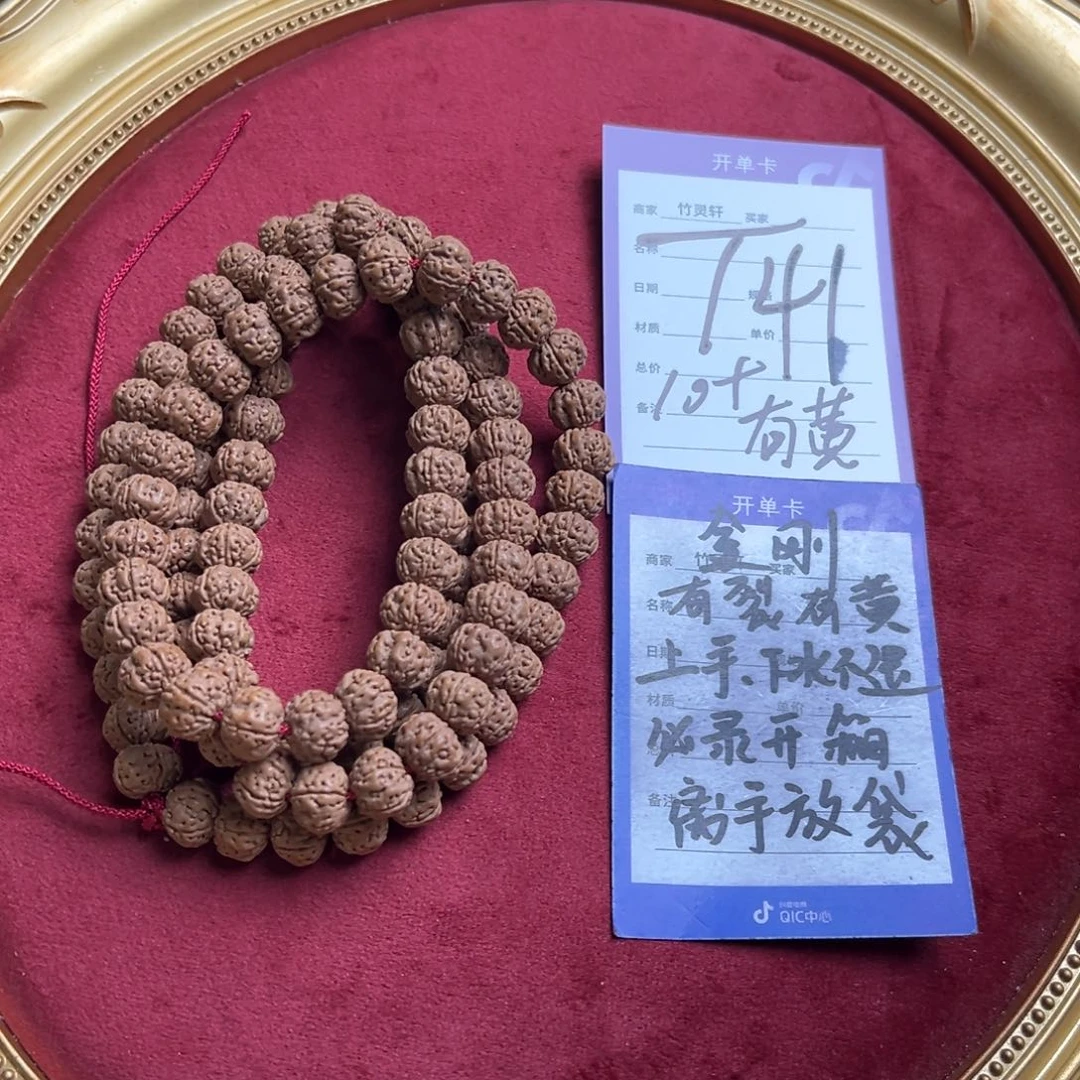 开单卡
商家 竹灵轩 买家
名称
T41
日期
材质 单价
总价
备注 10+
有黄
开单卡
金刚
商家 竹 买家
名称
有裂有黄
日期
上手、下水不退
材质 单价
必录开箱
备注
离手放袋
QIC中心